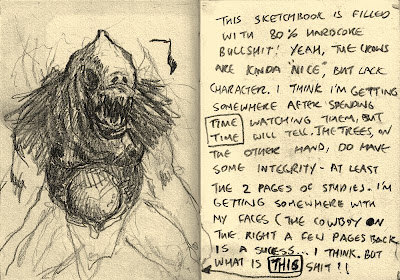 THIS SKETCHBOOK IS FILLED
WITH 80% HARDCORE
BULLSHIT! YEAH, THE CROWS
ARE KINDA "NICE", BUT LACK
CHARACTER. I THINK I'M GETTING
SOMEWHERE AFTER SPENDING
TIME WATCHING THEM, BUT
TIME WILL TELL. THE TREES, ON
THE OTHER HAND, DO HAVE
SOME INTEGRITY - AT LEAST
THE 2 PAGES OF STUDIES. I'M
GETTING SOMEWHERE WITH
MY FACES (THE COWBOY ON
THE RIGHT A FEW PAGES BACK
IS A SUCESS... I THINK. BUT
WHAT IS THIS SHIT!!